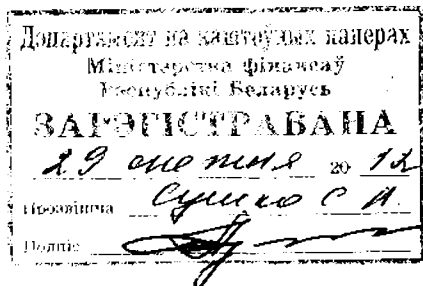 Дэпартамент па каштоўных паперах
Міністэрства фінансаў
Рэспублікі Беларусь
ЗАРЭГІСТРАВАНА
29 20 12
Прозвішча Сушко С А.
Подпіс